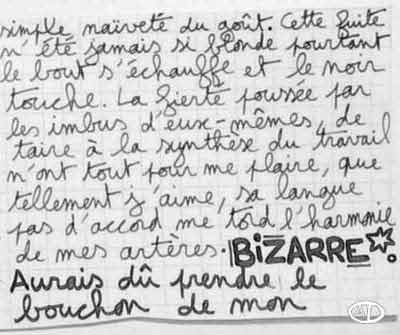 simple, naïveté du goût. Cette fuite
n'été jamais si blonde pourtant
le bout s'échauffe et le noir
touche. La fierté poussée par
les imbus d'eux-mêmes, de
taire à la synthèse du travail
n'ont tout pour me plaire, que
tellement j'aime, sa langue
pas d'accord me tord l'harmonie
de mes artères. BiZARRE
Aurais dû prendre le
bouchon de mon